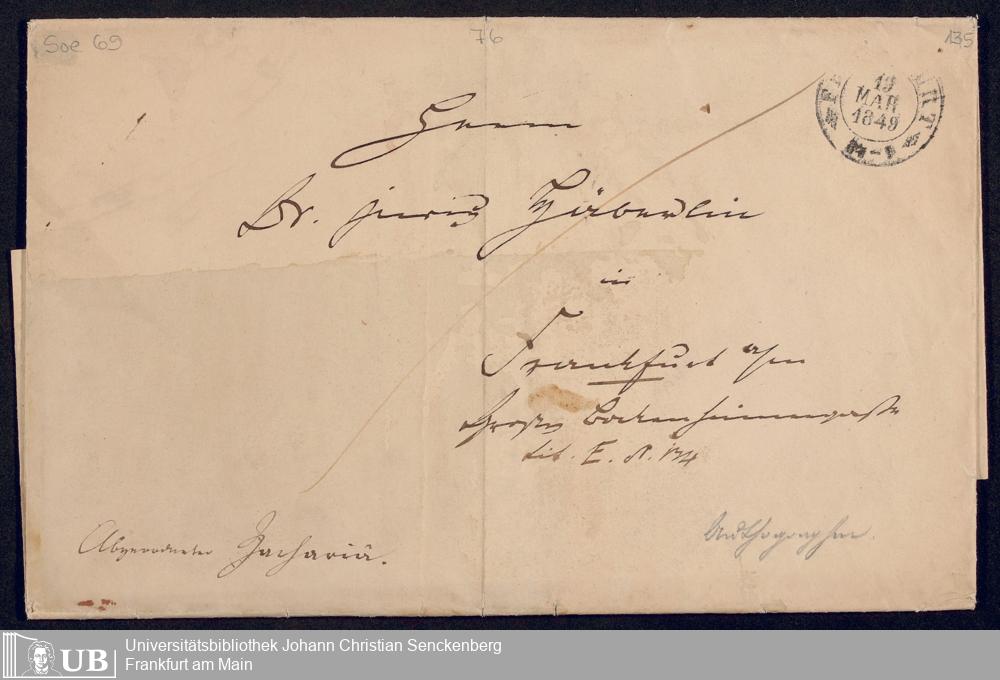 Soe 69
76
135
19
MAR
1849
Herrn
Dr. juris Häberlin
in
Frankfurt a/m
Große Bockenheimergasse
Lit. E. N. 134
Abgeordneter Zachariä.
UB
Universitätsbibliothek Johann Christian Senckenberg
Frankfurt am Main